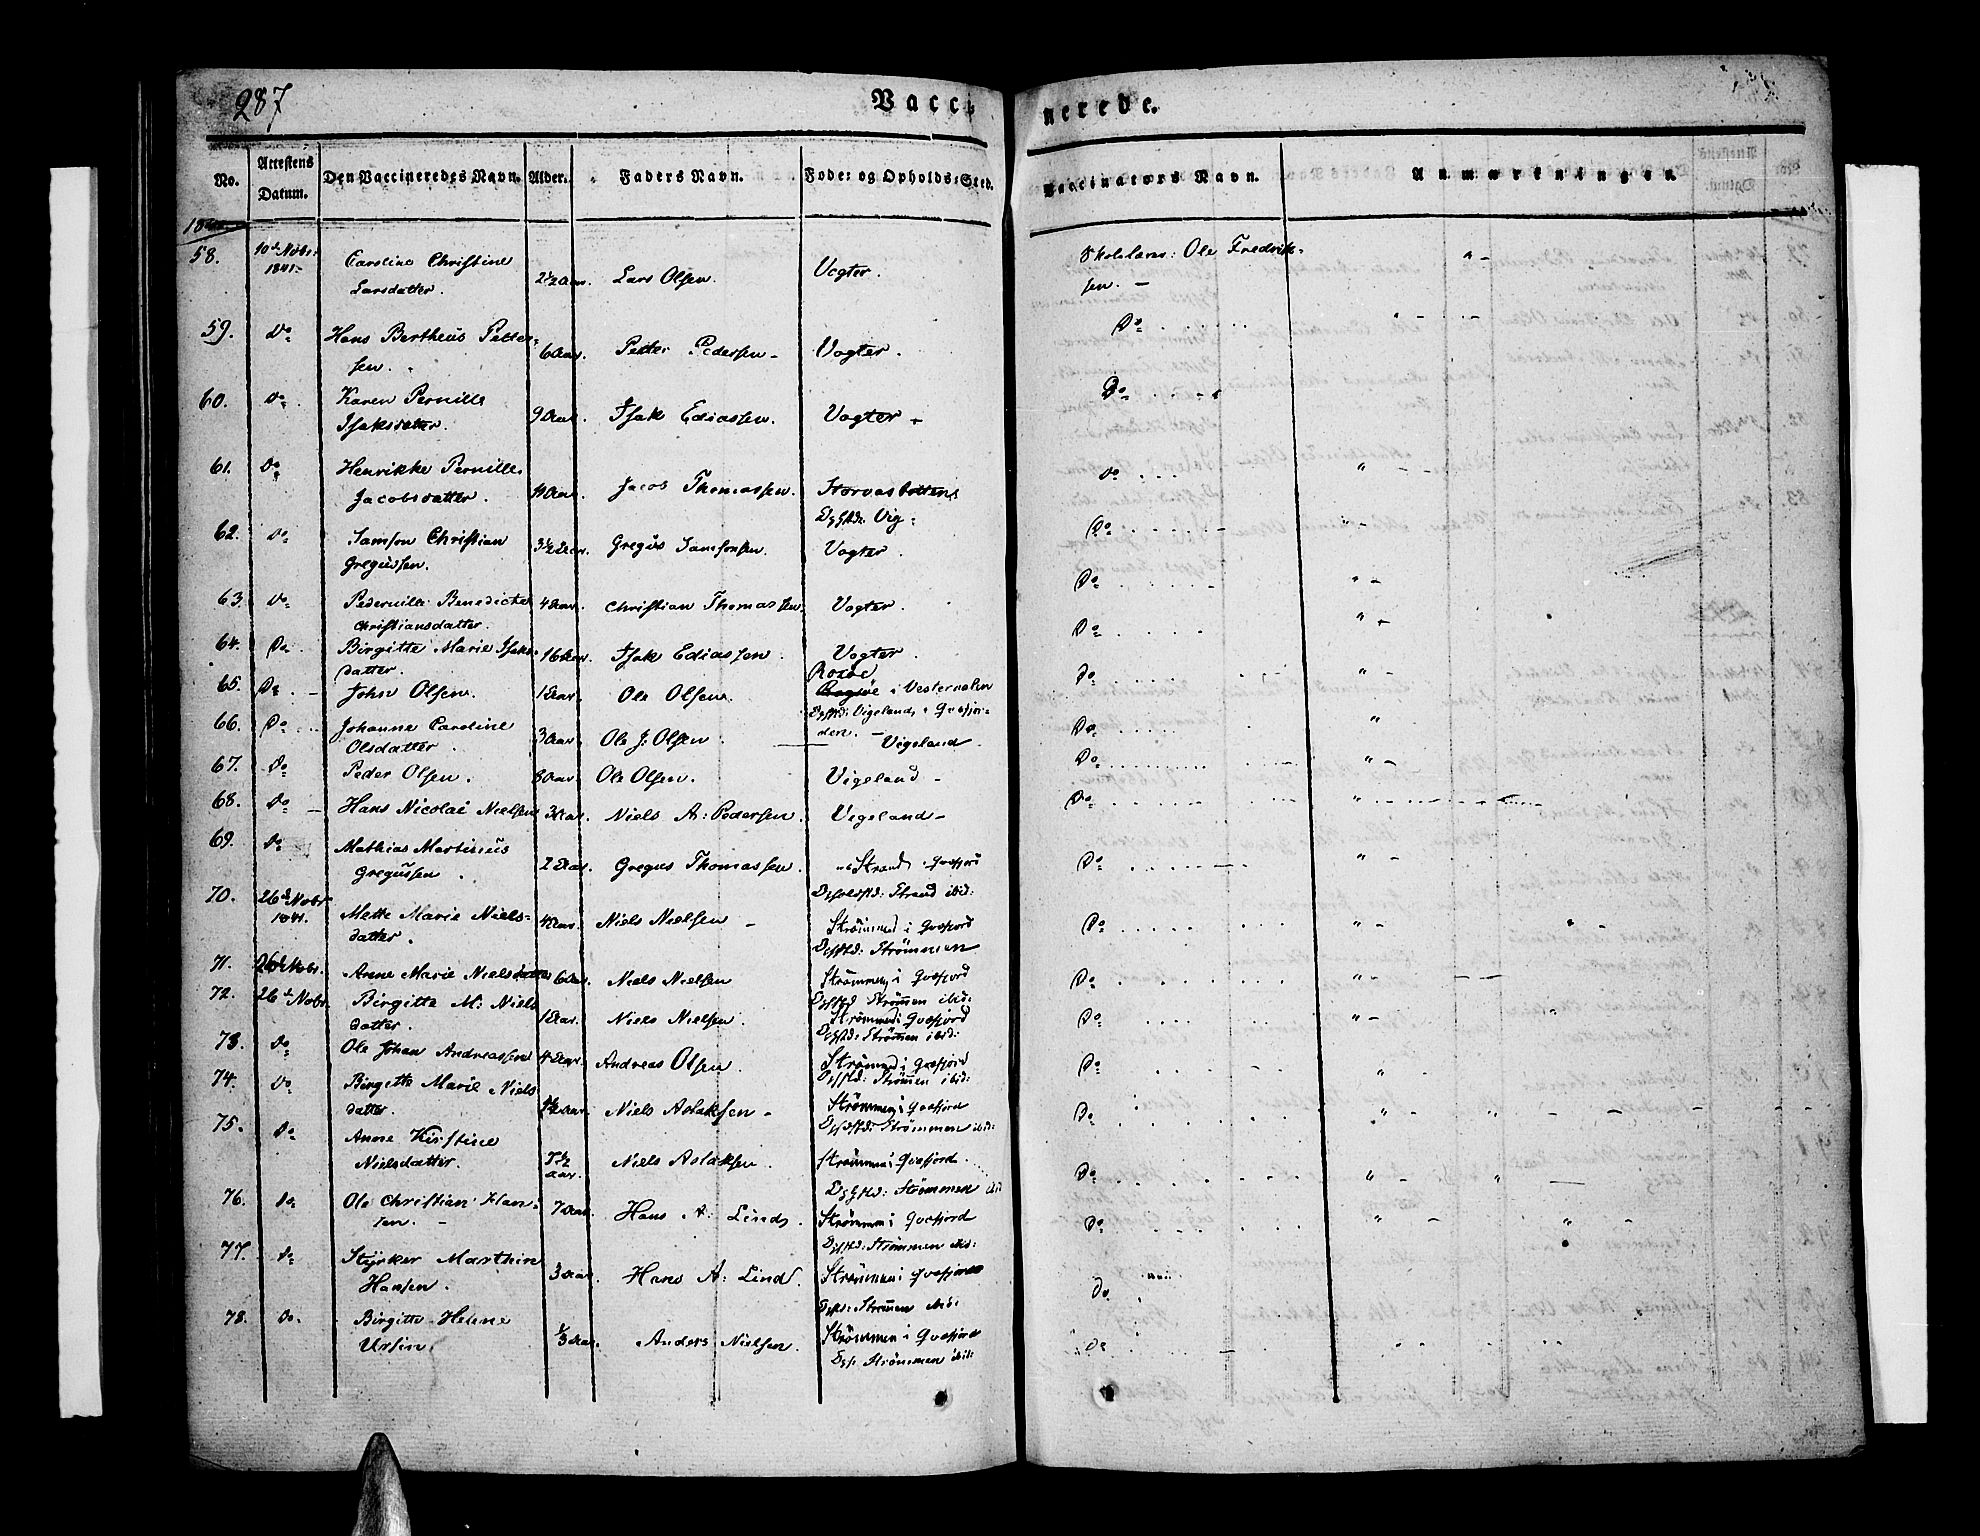 287
Vaccinerede.
No.
Attestens Datum.
Den Vaccineredes Navn.
Alder.
Faders Navn.
Føde- og Opholds-Sted.
Vaccinators Navn.
Anmærkninger.
58. 10de Nobr. 1841 Caroline Christine Larsdatter. 2½ Aar. Lars Olsen. Vogter. Skolelærer: Ole Fredriksen. —
59. Do Hans Bertheus Pettersen. 6 Aar. Petter Pedersen — Vogter. Do
60. Do Karen Pernille Isaksdatter. 9 Aar. Isak Ediassen. Vogter — Do
61. Do Henrikke Pernille Jacobsdatter. Aar. Jacob Thomassen. Vig. Do
62. Do Samson Christian Gregussen. 3½ Aar. Gregus Samsonsen. Vogter. Do
63. Do Benedicte Christiansdatter. 4 Aar. Christian Thomassen. Vogter. Do
64. Do Birgitte Marie Isaksdatter. 16 Aar. Isak Ediassen. Vogter. Do
65. Do — John Olsen. 1 Aar. Ole Olsen. i Vesteraalen Vigeland i Qvæfjorden. — Do
66. Do Johanne Caroline Olsdatter. 3 Aar. Ole J: Olsen. Vigeland. Do
67. Do Peder Olsen. Aar. Ole Olsen. Vigeland — Do
68. Do — Hans Nicolai Nielsen 3 Aar. Niels A: Pedersen. Vigeland — Do
69. Do Mathias Martinus Gregussen. 2 Aar. Gregus Thomassen. Strand i Qvæfjord Strand ibid: Do
70. 26de Nobr. 1841. Mette Marie Nielsdatter. 4 Aar. Niels Nielsen — Strömmen i Qvæfjord Strömmen Do
71. 26de Nobr. Anne Marie Nielsdatter 6 Aar. Niels Nielsen Strömmen i Qvæfjord Strömmen ibid: Do
72. 26de Nobr. Birgitte M: Nielsdatter. 1 Aar. Niels Nielsen. Strömmen i Qvæfjord Strömmen ibid: Do
73. Do Ole Johan Andreassen 4 Aar. Andreas Olsen. Strömmen i Qvæfjord Strömmen ibid: Do
74. Do Birgitte Marie Nielsdatter. Aar. Niels Aslaksen — Strömmen i Qvæfjord Strömmen ibid: Do
75. Do Anne Kirstine Nielsdatter. Aar. Niels Aslaksen. Strömmen i Qvæfjord. Strömmen ibid Do
76. Do Ole Christian Hansen. — 7 Aar. Hans A: Lind. Strömmen i Qvæfjord Strömmen ibid: Do
77. Do Styrker Marthin Hansen. 3 Aar. Hans A: Lind. Strömmen i Qvæfjord Strömmen ibid: Do
78. Do. Birgitte Helene Ursin. Aar. Anders Nielsen. Strömmen i Qvæfjord Strömmen ibid: Do